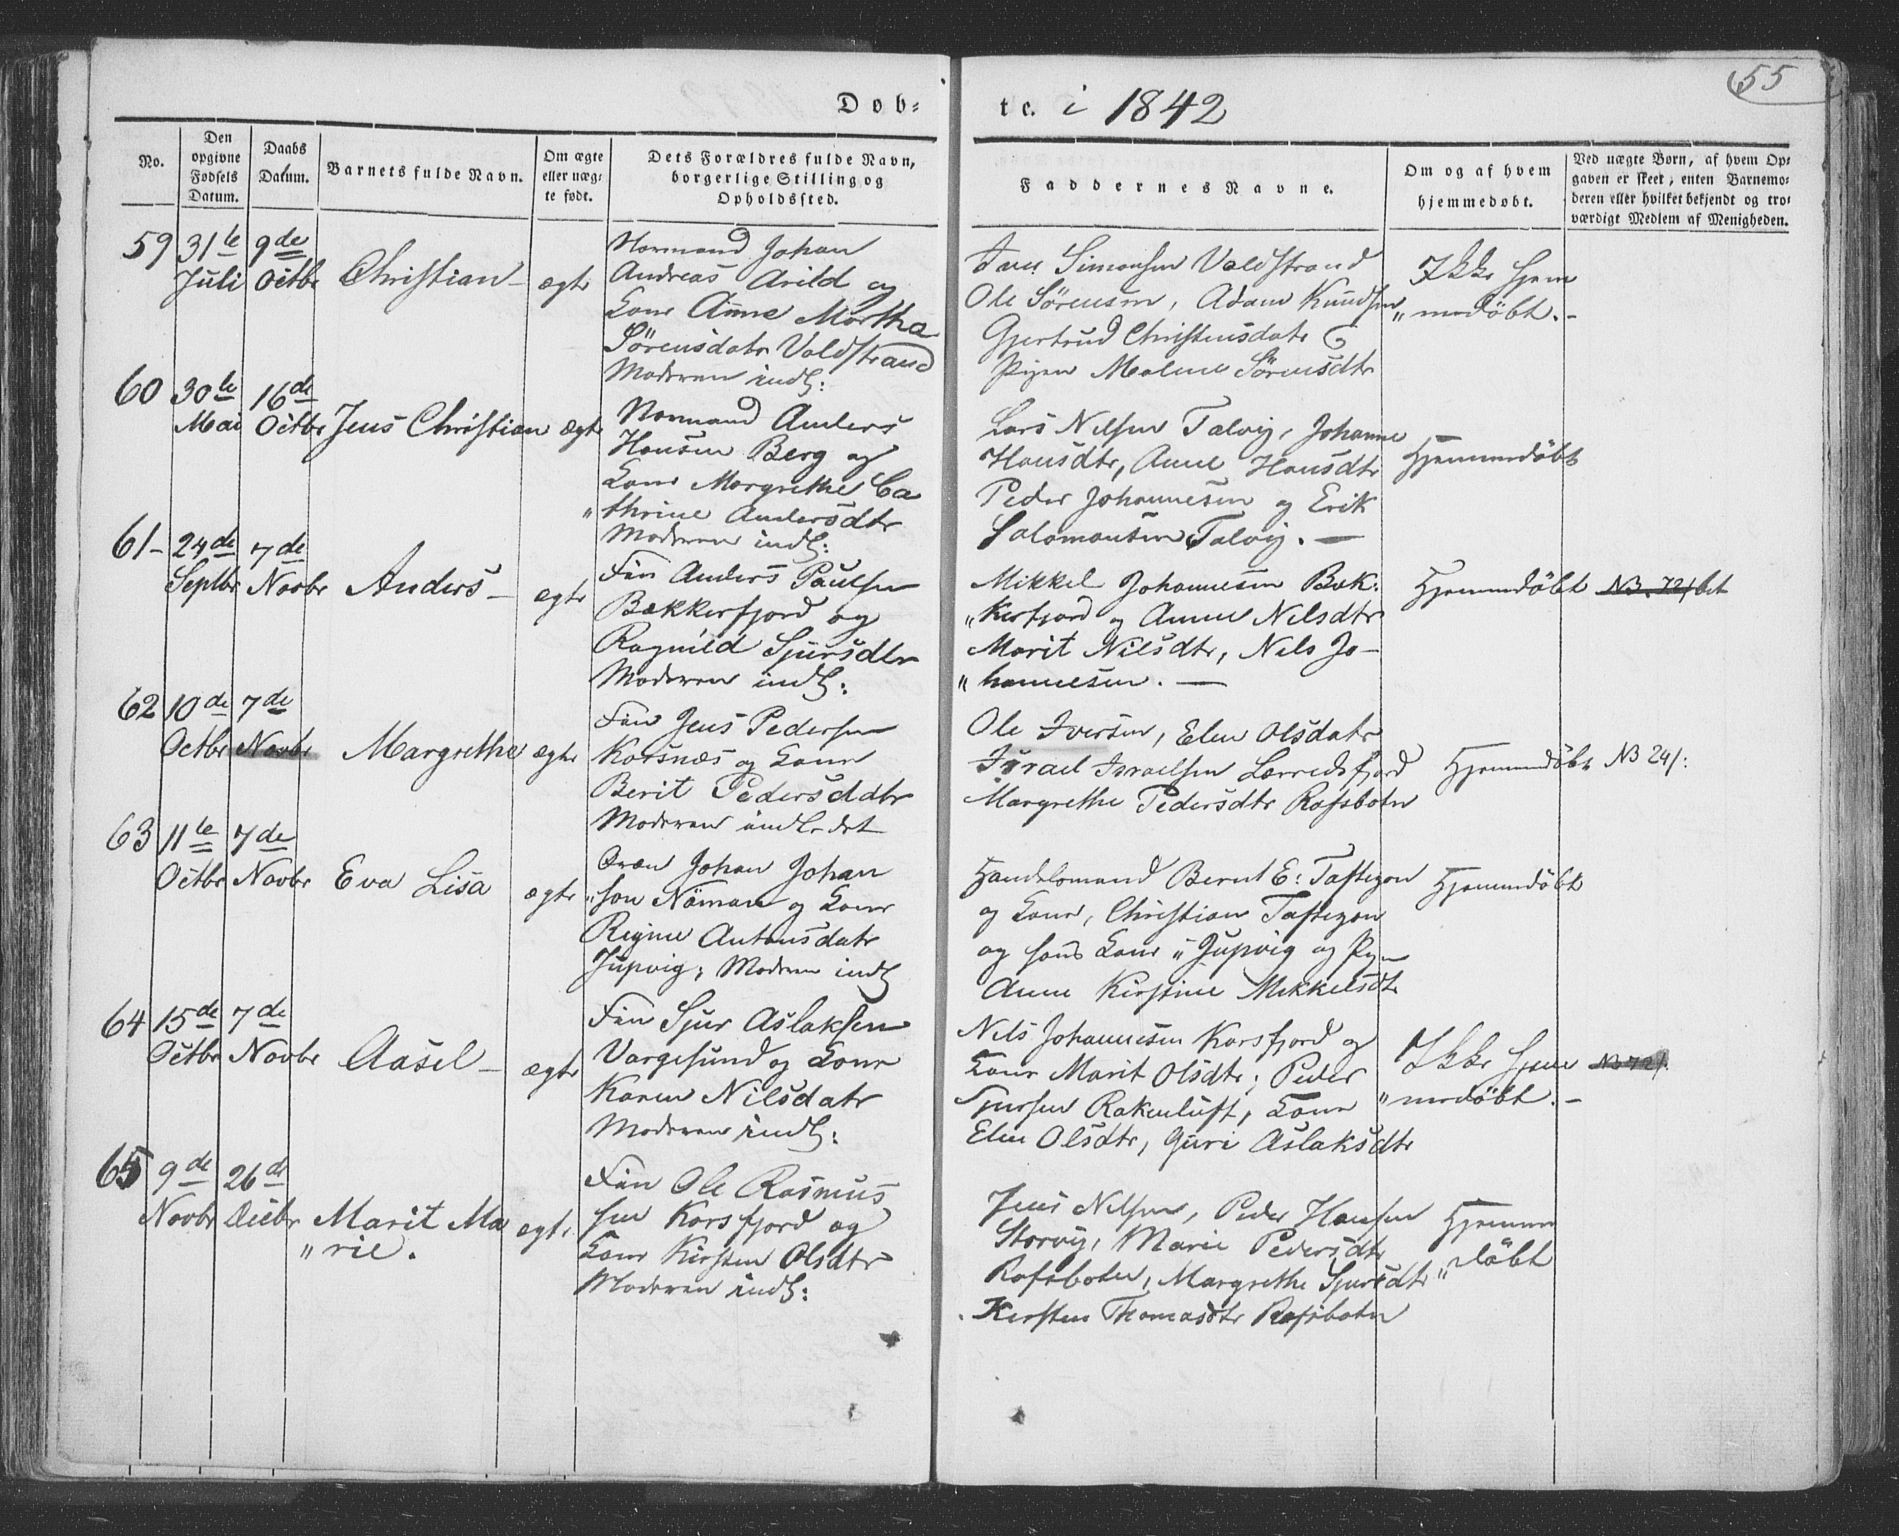 55
Døb-
te. i 1842
No.
Den opgivne Fødsels Datum.
Daabs Datum.
Barnets fulde Navn.
Om ægte eller uæg-te født.
Dets Forældres fulde Navn, borgerlige Stilling og Opholdssted.
Faddernes Navne.
Om og af hvem hjemmedøbt.
Ved uægte Børn, af hvem Op-
gaven er skeet, enten Barnemo-
deren eller hvilket bekjendt og tro-
værdigt Medlem af Menigheden.
59 31te Juli 9de Octbr Christian – ægte
Normand Johan
Andreas Arild og
Kone Anne Martha
Sörensdatr Valdstrand
Moderen indl:
Simonsen Valdstrand
Ole Sörensen, Adam Knudsen
Gjertrud Christensdatr
Pigen Malene Sörensdtr
Ikke hjem
„ medöbt. –
60 30te Mai 16de Octbr Jens Christian ægte
Normand Anders
Hansen Berg og
Kone Margrethe Ca
„ thrine Andersdtr
Moderen indl:
Lars Nilsen Talvig, Johanne
Hansdtr, Anne Hansdtr
Peder Johannesen og Erik
Salomonsen Talvig. —
Hjemmedöbt
61– 24de Septbr 7de Novbr Anders – ægte
Fin Anders Paulsen
Bækkerfjord og
Ragnild Sjursdtr
Moderen indl:
Mikkel Johannesen Bæk:
„ kerfjord og Anne Nilsdtr
Marit Nilsdtr, Nils Jo–
„ hannesen. —
Hjemmedöbt
NB. 72/
62 10de Octbr 7de Novbr Margrethe ægte
Fin Jens Pedersen
Korsnæs og Kone
Berit Pedersddtr
Moderen indledet
Ole Iversen, Elen Olsdatr
Israel Israelsen Lerredsfjord
Margrethe Pedersdtr Rafsbotn
Hjemmedöbt
NB 24/:
63 11te Octbr 7de Novbr Eva Lisa ægte
Qvæn Johan Johan
„ sen Nöman og Kone
Regine Antonsdatr
Jupvig; Moderen indl
Handelsmand Bernt E: Taftezon
og Kone, Christian Taftezon
og hans Kone „ Jupvig og Pgn
Anne Kirstine Mikkelsdtr
Hjemmedöbt
64 15de Octbr 7de Novbr Aasel – ægte
Fin Sjur Aslaksen
Vargesund og Kone
Karen Nilsdatr
Moderen indl:
Nils Johannesen Korsfjord og
Kone Marit Olsdtr; Peder
Sjursen Rakenluft, Kone
Elen Olsdtr, Guri Aslaksdtr
Ikke hjem
„ medöbt. –
NB 72/
65 9de Novbr 26de Decbr Marit Ma
„ rie. ægte
Fin Ole Rasmus
sen Korsfjord og
Kone Kirsten Olsdtr
Moderen indl:
Jens Nilsen, Peder Hansen
Storvig, Marie Pedersdtr
Rafsbotn, Margrethe Sjursdtr
Kirsten Thomasdtr Rafsbotn
Hjemme
„ döbt